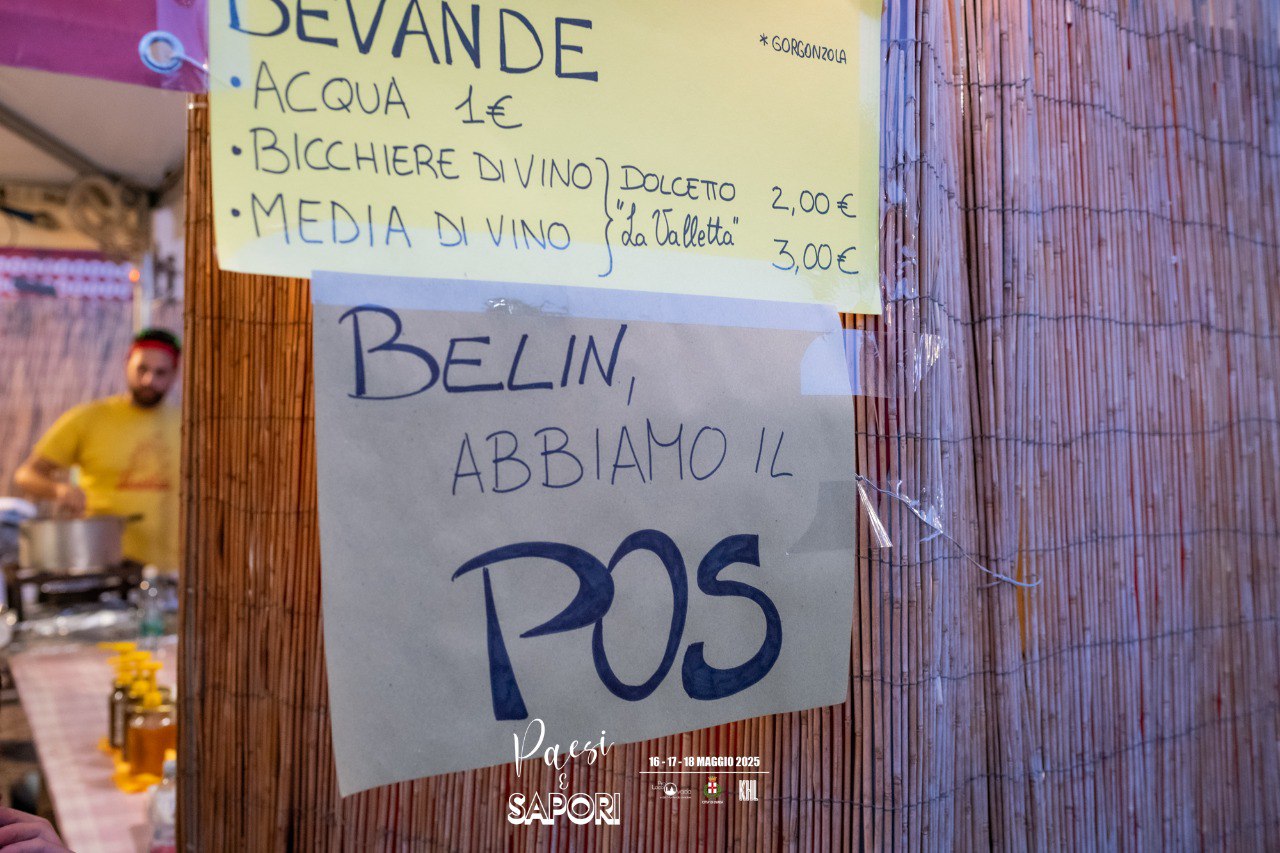 BEVANDE
* GORGONZOLA
• ACQUA 1€
• BICCHIERE DI VINO } DOLCETTO 2,00€
• MEDIA DI VINO "La Valletta" 3,00€
BELIN,
ABBIAMO IL
POS
Paesi
&
SAPORI
16 - 17 - 18 MAGGIO 2025